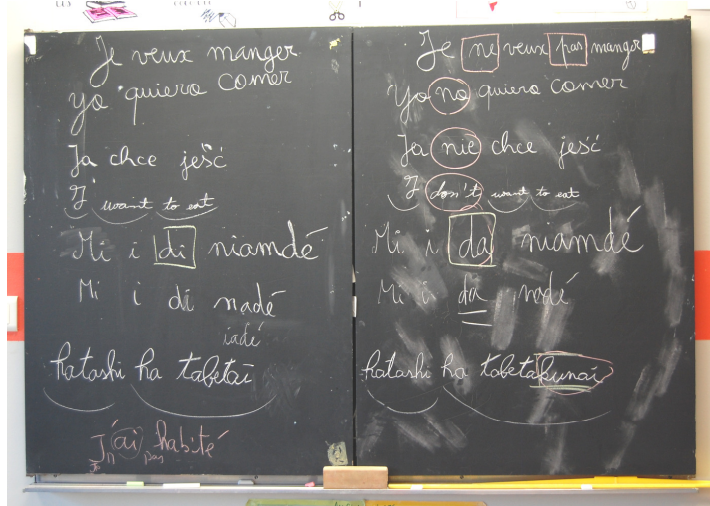 Je veux manger
yo quiero comer
Ja chce jeść
I want to eat
Mi i di niamdé
Mi i di nadé
iadé
hatashi ha tabetaï
J'ai habité
n pas
Je ne veux pas manger
Yo no quiero comer
Ja nie chce jeść
I don't want to eat
Mi i da niamdé
Mi i da nadé
hatashi ha tabetakunaï